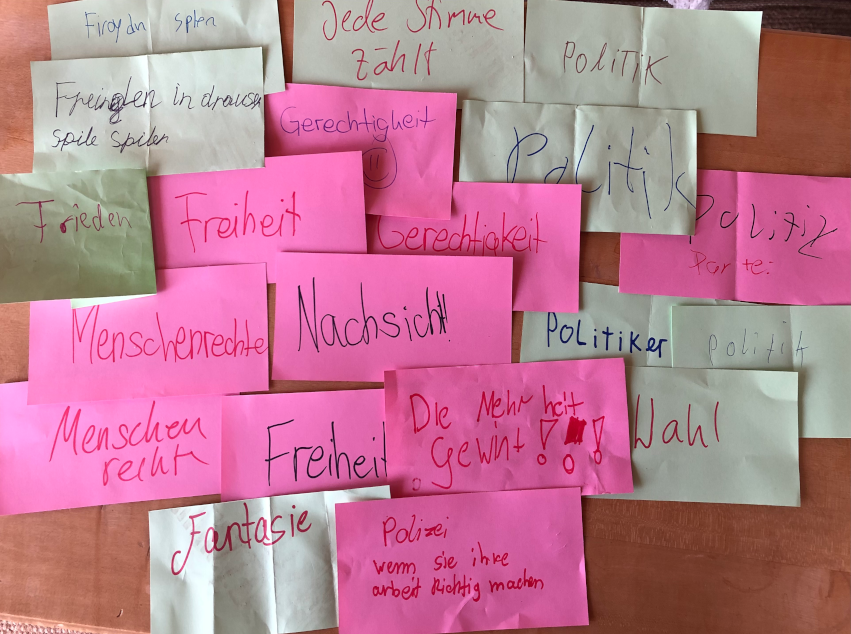 Firaydn splen
Jede Stimme
zählt
POLITIK
Freingden in drausn
spile spilen
Gerechtigkeit
Politik
Frieden
Freiheit
Gerechtigkeit
Politiz
Partei
Menschenrechte
Nachsicht!!
POLITIKER
politik
Menschen
recht
Freiheit
Die Mehrheit
gewint !!!
Wahl
Fantasie
Polizei
wenn sie ihre
arbeit Richtig machen